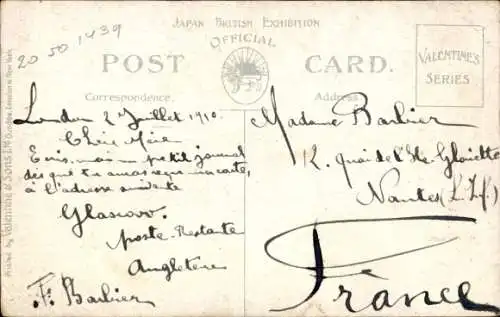 20 50 1439
JAPAN BRITISH EXHIBITION
OFFICIAL
POST CARD.
Correspondence.
Address
VALENTINE'S
SERIES
Printed by Valentine & Sons Ltd Dundee, London & New York
London 2 Juillet 1910.
Chère Mère
Ecris moi un petit journal
dès que tu auras reçu ma carte,
à l'adresse suivante
Glascow.
Poste-Restante
Angleterre
F. Barbier
Madame Barbier
12. quai de l'Ile Gloriette
Nantes (L. Inf.)
France